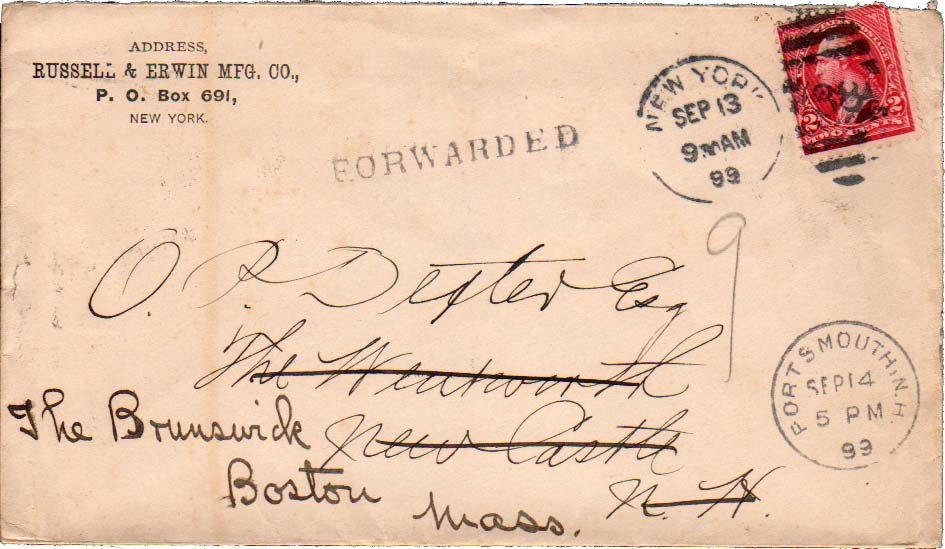 ADDRESS,
RUSSELL & ERWIN MFG. CO.,
P. O. Box 691,
NEW YORK.
FORWARDED
NEW YORK
SEP 13
9 AM
99
2 2
9
O. P. Dexter Esq
The Wentworth
New Castle
N. H.
The Brunswick
Boston
Mass.
PORTSMOUTH, N.H.
SEP 14
5 PM
99